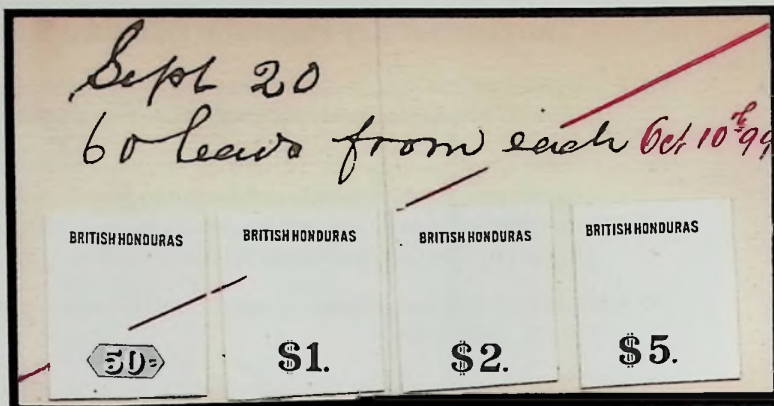 Sept 20
60 leads from each Oct 10th 99
BRITISH HONDURAS BRITISH HONDURAS BRITISH HONDURAS BRITISH HONDURAS
50c $1. $2. $5.